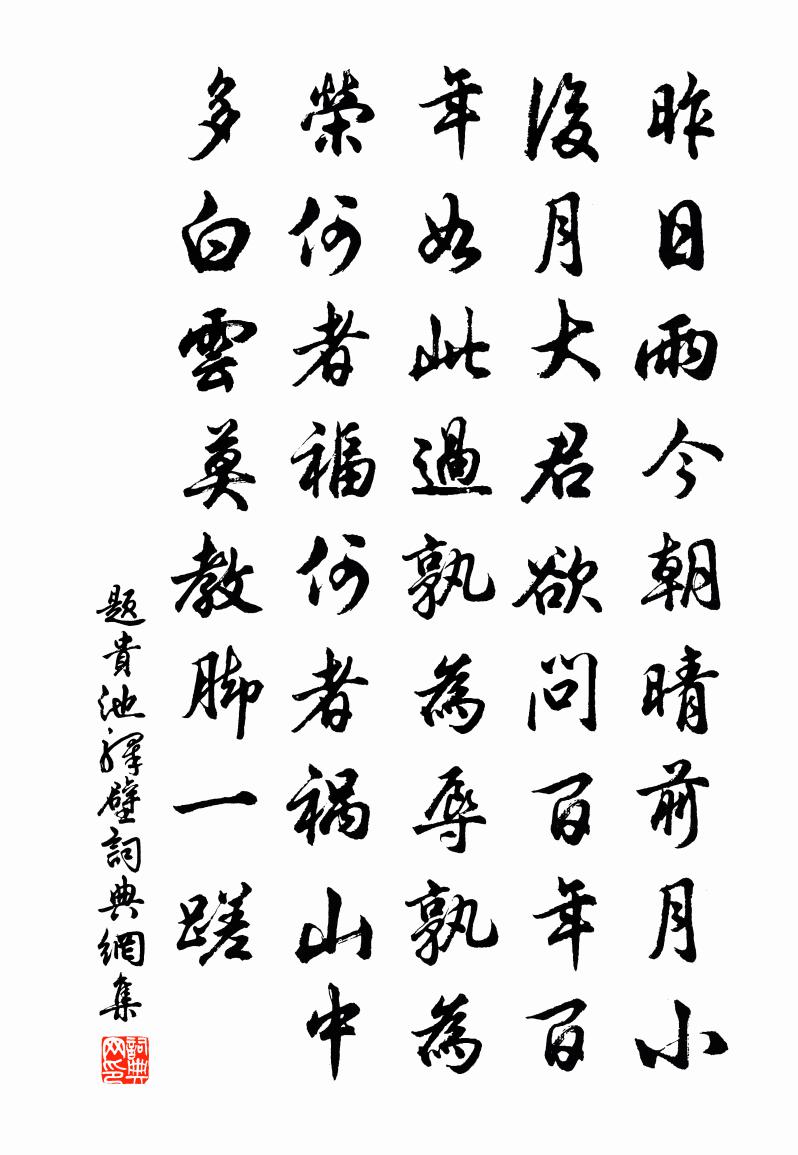 昨日雨今朝晴前月小
後月大君欲問百年百
年如此過孰為辱孰為
榮何者福何者祸山中
多白雲莫教脚一蹉
题貴池驛壁詞典網集
詞典网印